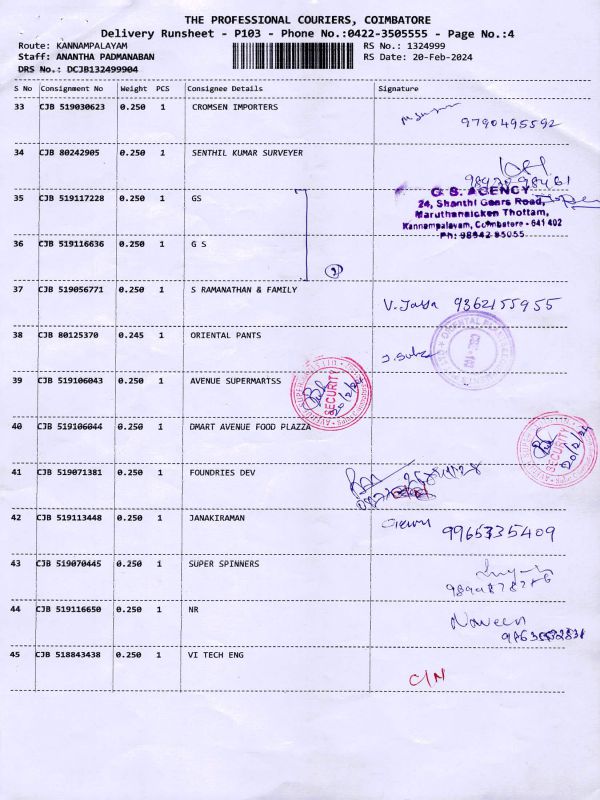 THE PROFESSIONAL COURIERS, COIMBATORE
Delivery Runsheet - P103 - Phone No.:0422-3505555 - Page No.:4
Route: KANNAMPALAYAM RS No.: 1324999
Staff: ANANTHA PADMANABAN RS Date: 20-Feb-2024
DRS No.: DCJB132499904
S No Consignment No Weight PCS Consignee Details Signature
33 CJB 519030623 0.250 1 CROMSEN IMPORTERS
9790495592
34 CJB 80242905 0.250 1 SENTHIL KUMAR SURVEYER
35 CJB 519117228 0.250 1 GS
G S. AGENCY
24, Shanthi Gears Road,
Maruthanaicken Thottam,
Kannampalayam, Coimbatore - 641 402
Ph: 98942 95055
36 CJB 519116636 0.250 1 G S
2
37 CJB 519056771 0.250 1 S RAMANATHAN & FAMILY
V. Jaya 9362155955
38 CJB 80125370 0.245 1 ORIENTAL PANTS
39 CJB 519106043 0.250 1 AVENUE SUPERMARTSS
SECURITY
20/2/24
40 CJB 519106044 0.250 1 DMART AVENUE FOOD PLAZZA
SECURITY
20/2/24
41 CJB 519071381 0.250 1 FOUNDRIES DEV
42 CJB 519113448 0.250 1 JANAKIRAMAN
9965335409
43 CJB 519070445 0.250 1 SUPER SPINNERS
44 CJB 519116650 0.250 1 NR
Naveen
45 CJB 518843438 0.250 1 VI TECH ENG
C/N